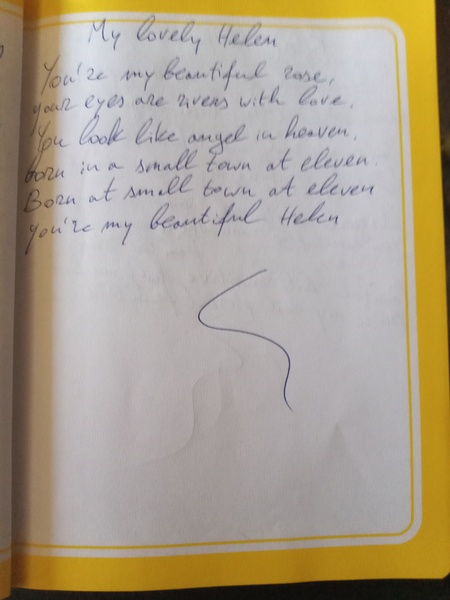 My lovely Helen
You're my beautiful rose,
your eyes are rivers with love.
You look like angel in heaven,
born in a small town at eleven.
Born at small town at eleven
you're my beautiful Helen